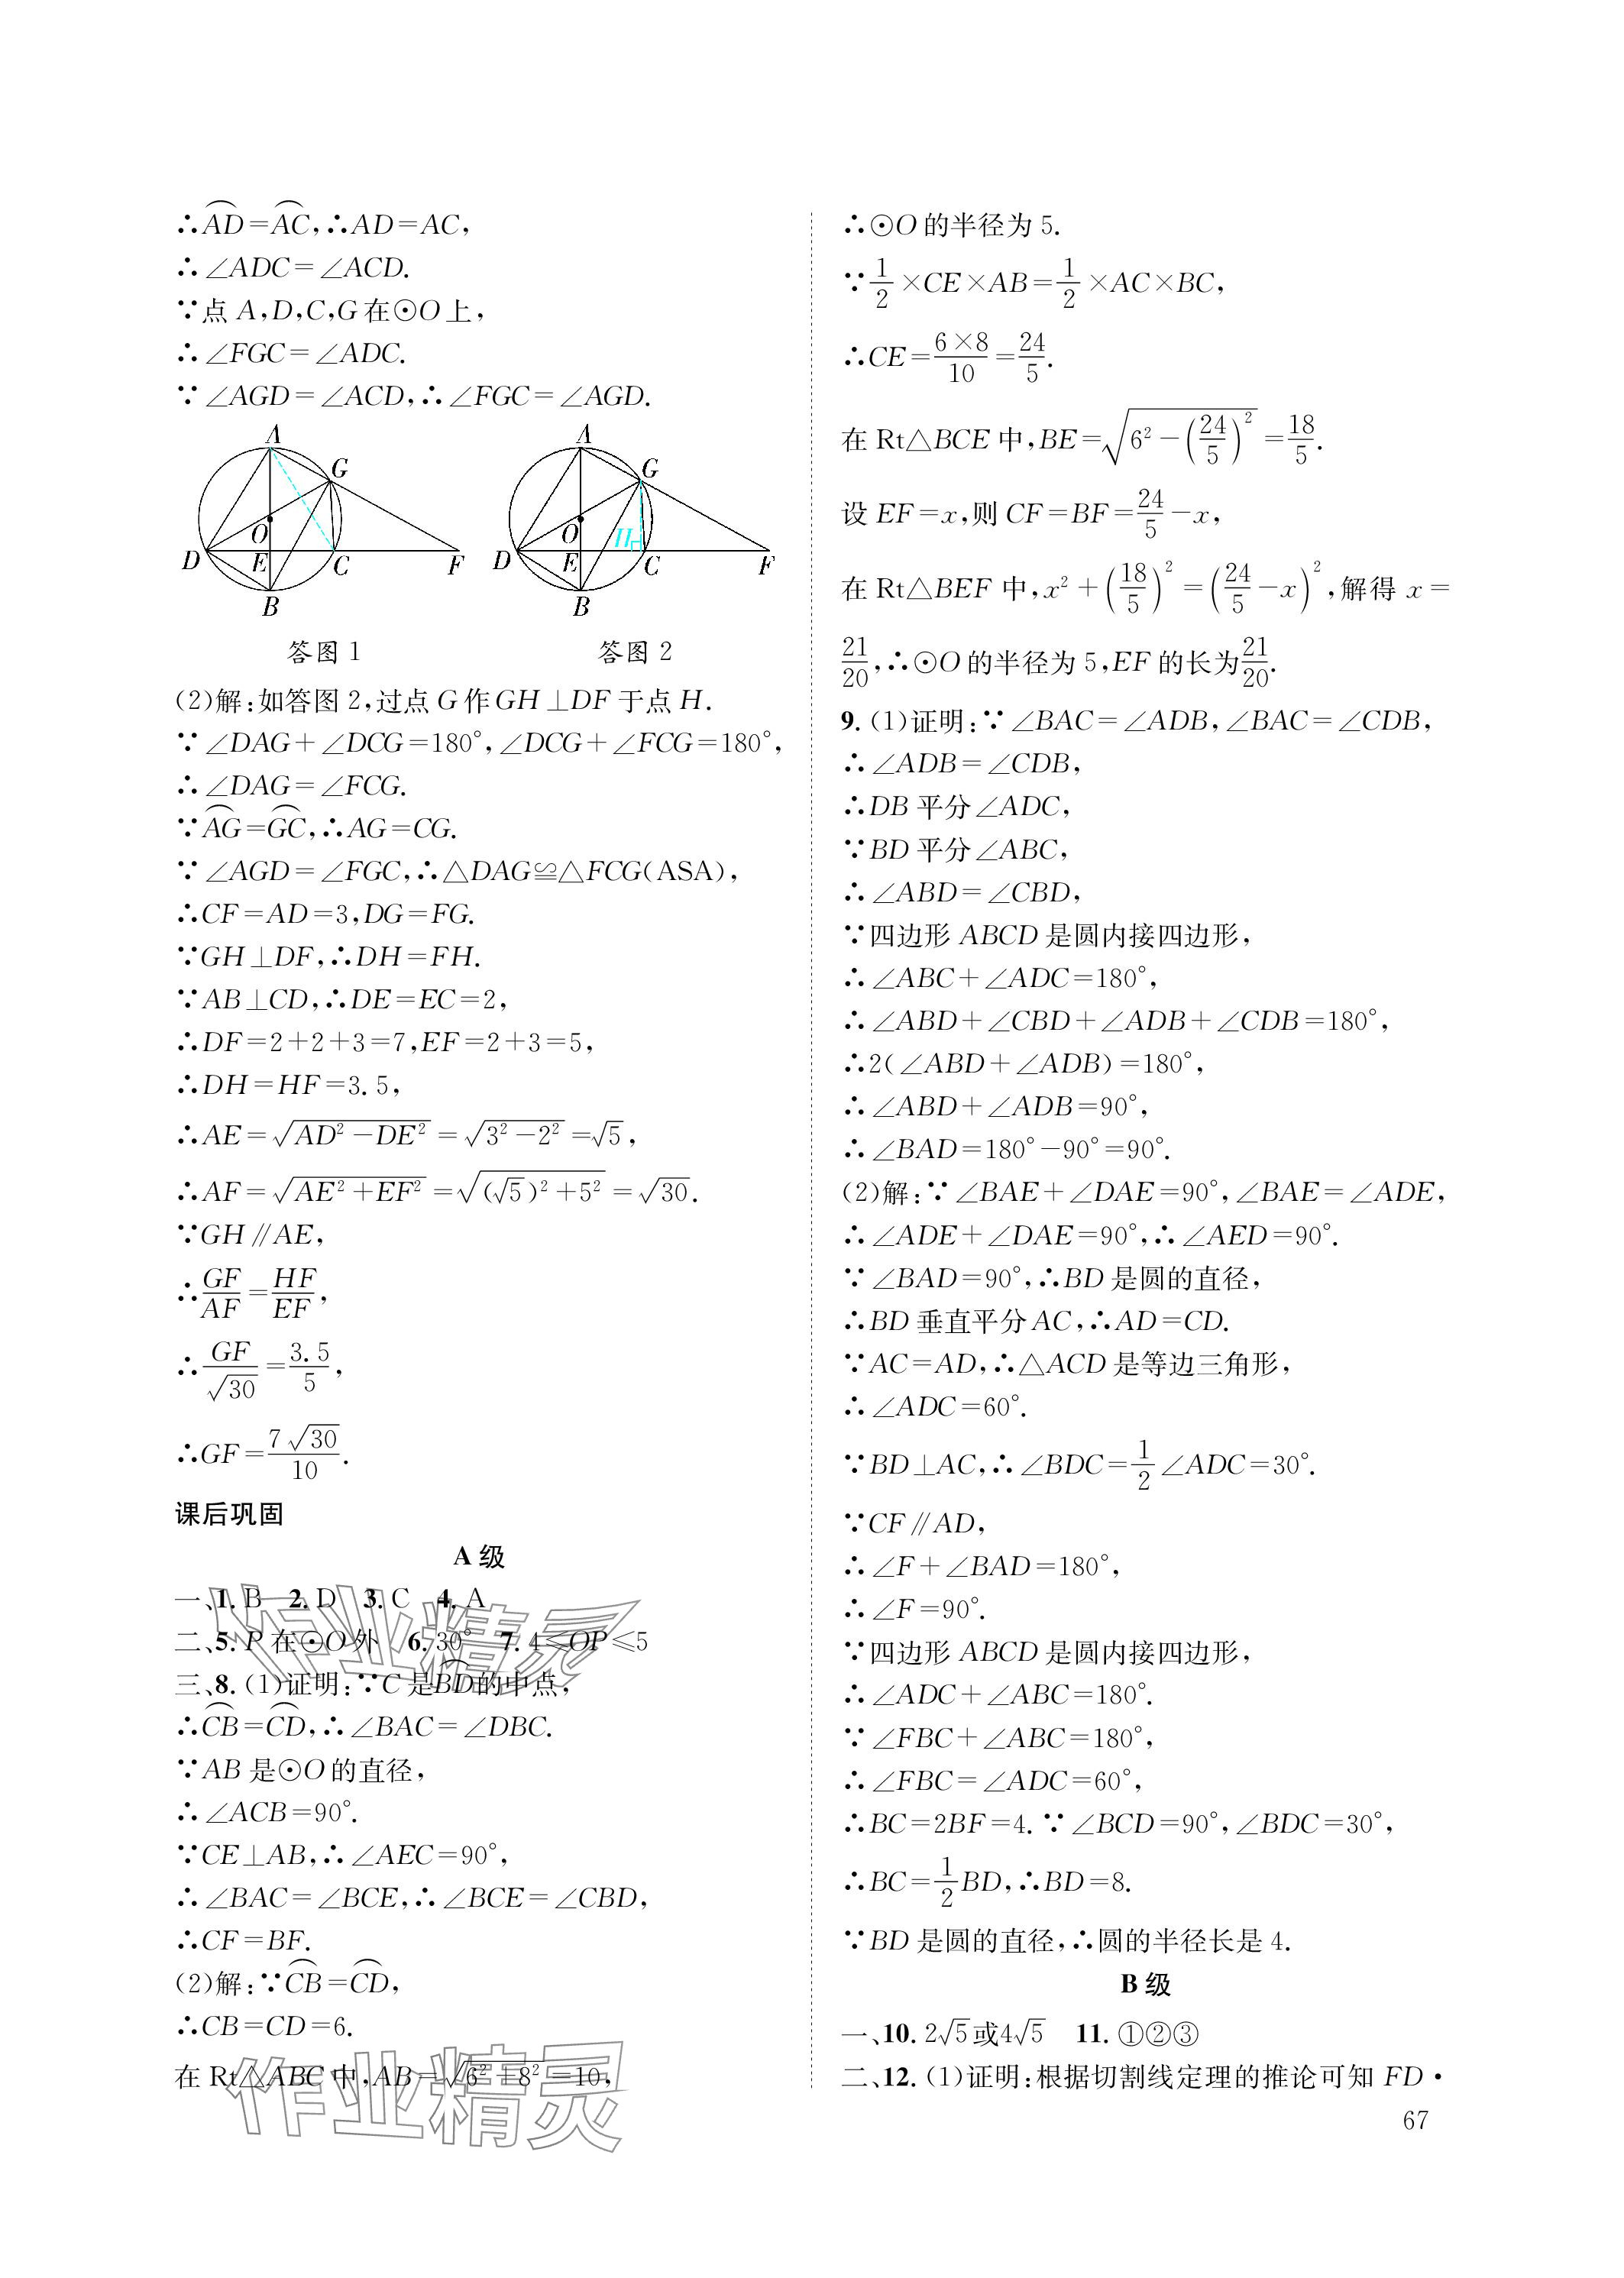 ∴A͡D=A͡C,∴AD=AC,
∴∠ADC=∠ACD.
∵点 A,D,C,G在⊙O上,
∴∠FGC=∠ADC.
∵∠AGD=∠ACD,∴∠FGC=∠AGD.
A
G
O
D
E
C
F
B
答图 1
A
G
O
H
D
E
C
F
B
答图 2
(2)解:如答图 2,过点 G作GH⊥DF 于点 H.
∵∠DAG+∠DCG=180°,∠DCG+∠FCG=180°,
∴∠DAG=∠FCG.
∵A͡G=G͡C,∴AG=CG.
∵∠AGD=∠FGC,∴△DAG≌△FCG(ASA),
∴CF=AD=3,DG=FG.
∵GH⊥DF,∴DH=FH.
∵AB⊥CD,∴DE=EC=2,
∴DF=2+2+3=7,EF=2+3=5,
∴DH=HF=3.5,
∴AE=√(AD²-DE²)=√(3²-2²)=√5,
∴AF=√(AE²+EF²)=√((√5)²+5²)=√30.
∵GH∥AE,
∴GF/AF=HF/EF,
∴GF/√30=3.5/5,
∴GF=7√30/10.
课后巩固
A 级
一、1. B 2. D 3. C 4. A
二、5. P 在⊙O外 6. 30° 7. 4≤OP≤5
三、8. (1)证明:∵C 是B͡D的中点,
∴C͡B=C͡D,∴∠BAC=∠DBC.
∵AB 是⊙O 的直径,
∴∠ACB=90°.
∵CE⊥AB,∴∠AEC=90°,
∴∠BAC=∠BCE,∴∠BCE=∠CBD,
∴CF=BF.
(2)解:∵C͡B=C͡D,
∴CB=CD=6.
在 Rt△ABC 中,AB=√(6²+8²)=10,
∴⊙O 的半径为 5.
∵1/2×CE×AB=1/2×AC×BC,
∴CE=6×8/10=24/5.
在 Rt△BCE 中,BE=√(6²-(24/5)²)=18/5.
设 EF=x,则 CF=BF=24/5-x,
在 Rt△BEF 中,x²+(18/5)²=(24/5-x)²,解得 x=
21/20,∴⊙O 的半径为 5,EF 的长为21/20.
9. (1)证明:∵∠BAC=∠ADB,∠BAC=∠CDB,
∴∠ADB=∠CDB,
∴DB 平分∠ADC,
∵BD 平分∠ABC,
∴∠ABD=∠CBD,
∵四边形 ABCD 是圆内接四边形,
∴∠ABC+∠ADC=180°,
∴∠ABD+∠CBD+∠ADB+∠CDB=180°,
∴2(∠ABD+∠ADB)=180°,
∴∠ABD+∠ADB=90°,
∴∠BAD=180°-90°=90°.
(2)解:∵∠BAE+∠DAE=90°,∠BAE=∠ADE,
∴∠ADE+∠DAE=90°,∴∠AED=90°.
∵∠BAD=90°,∴BD 是圆的直径,
∴BD 垂直平分 AC,∴AD=CD.
∵AC=AD,∴△ACD 是等边三角形,
∴∠ADC=60°.
∵BD⊥AC,∴∠BDC=1/2∠ADC=30°.
∵CF∥AD,
∴∠F+∠BAD=180°,
∴∠F=90°.
∵四边形 ABCD 是圆内接四边形,
∴∠ADC+∠ABC=180°.
∵∠FBC+∠ABC=180°,
∴∠FBC=∠ADC=60°,
∴BC=2BF=4. ∵∠BCD=90°,∠BDC=30°,
∴BC=1/2BD,∴BD=8.
∵BD 是圆的直径,∴圆的半径长是 4.
B 级
一、10. 2√5或4√5 11. ①②③
二、12. (1)证明:根据切割线定理的推论可知 FD·
67
作业精灵
作业精灵